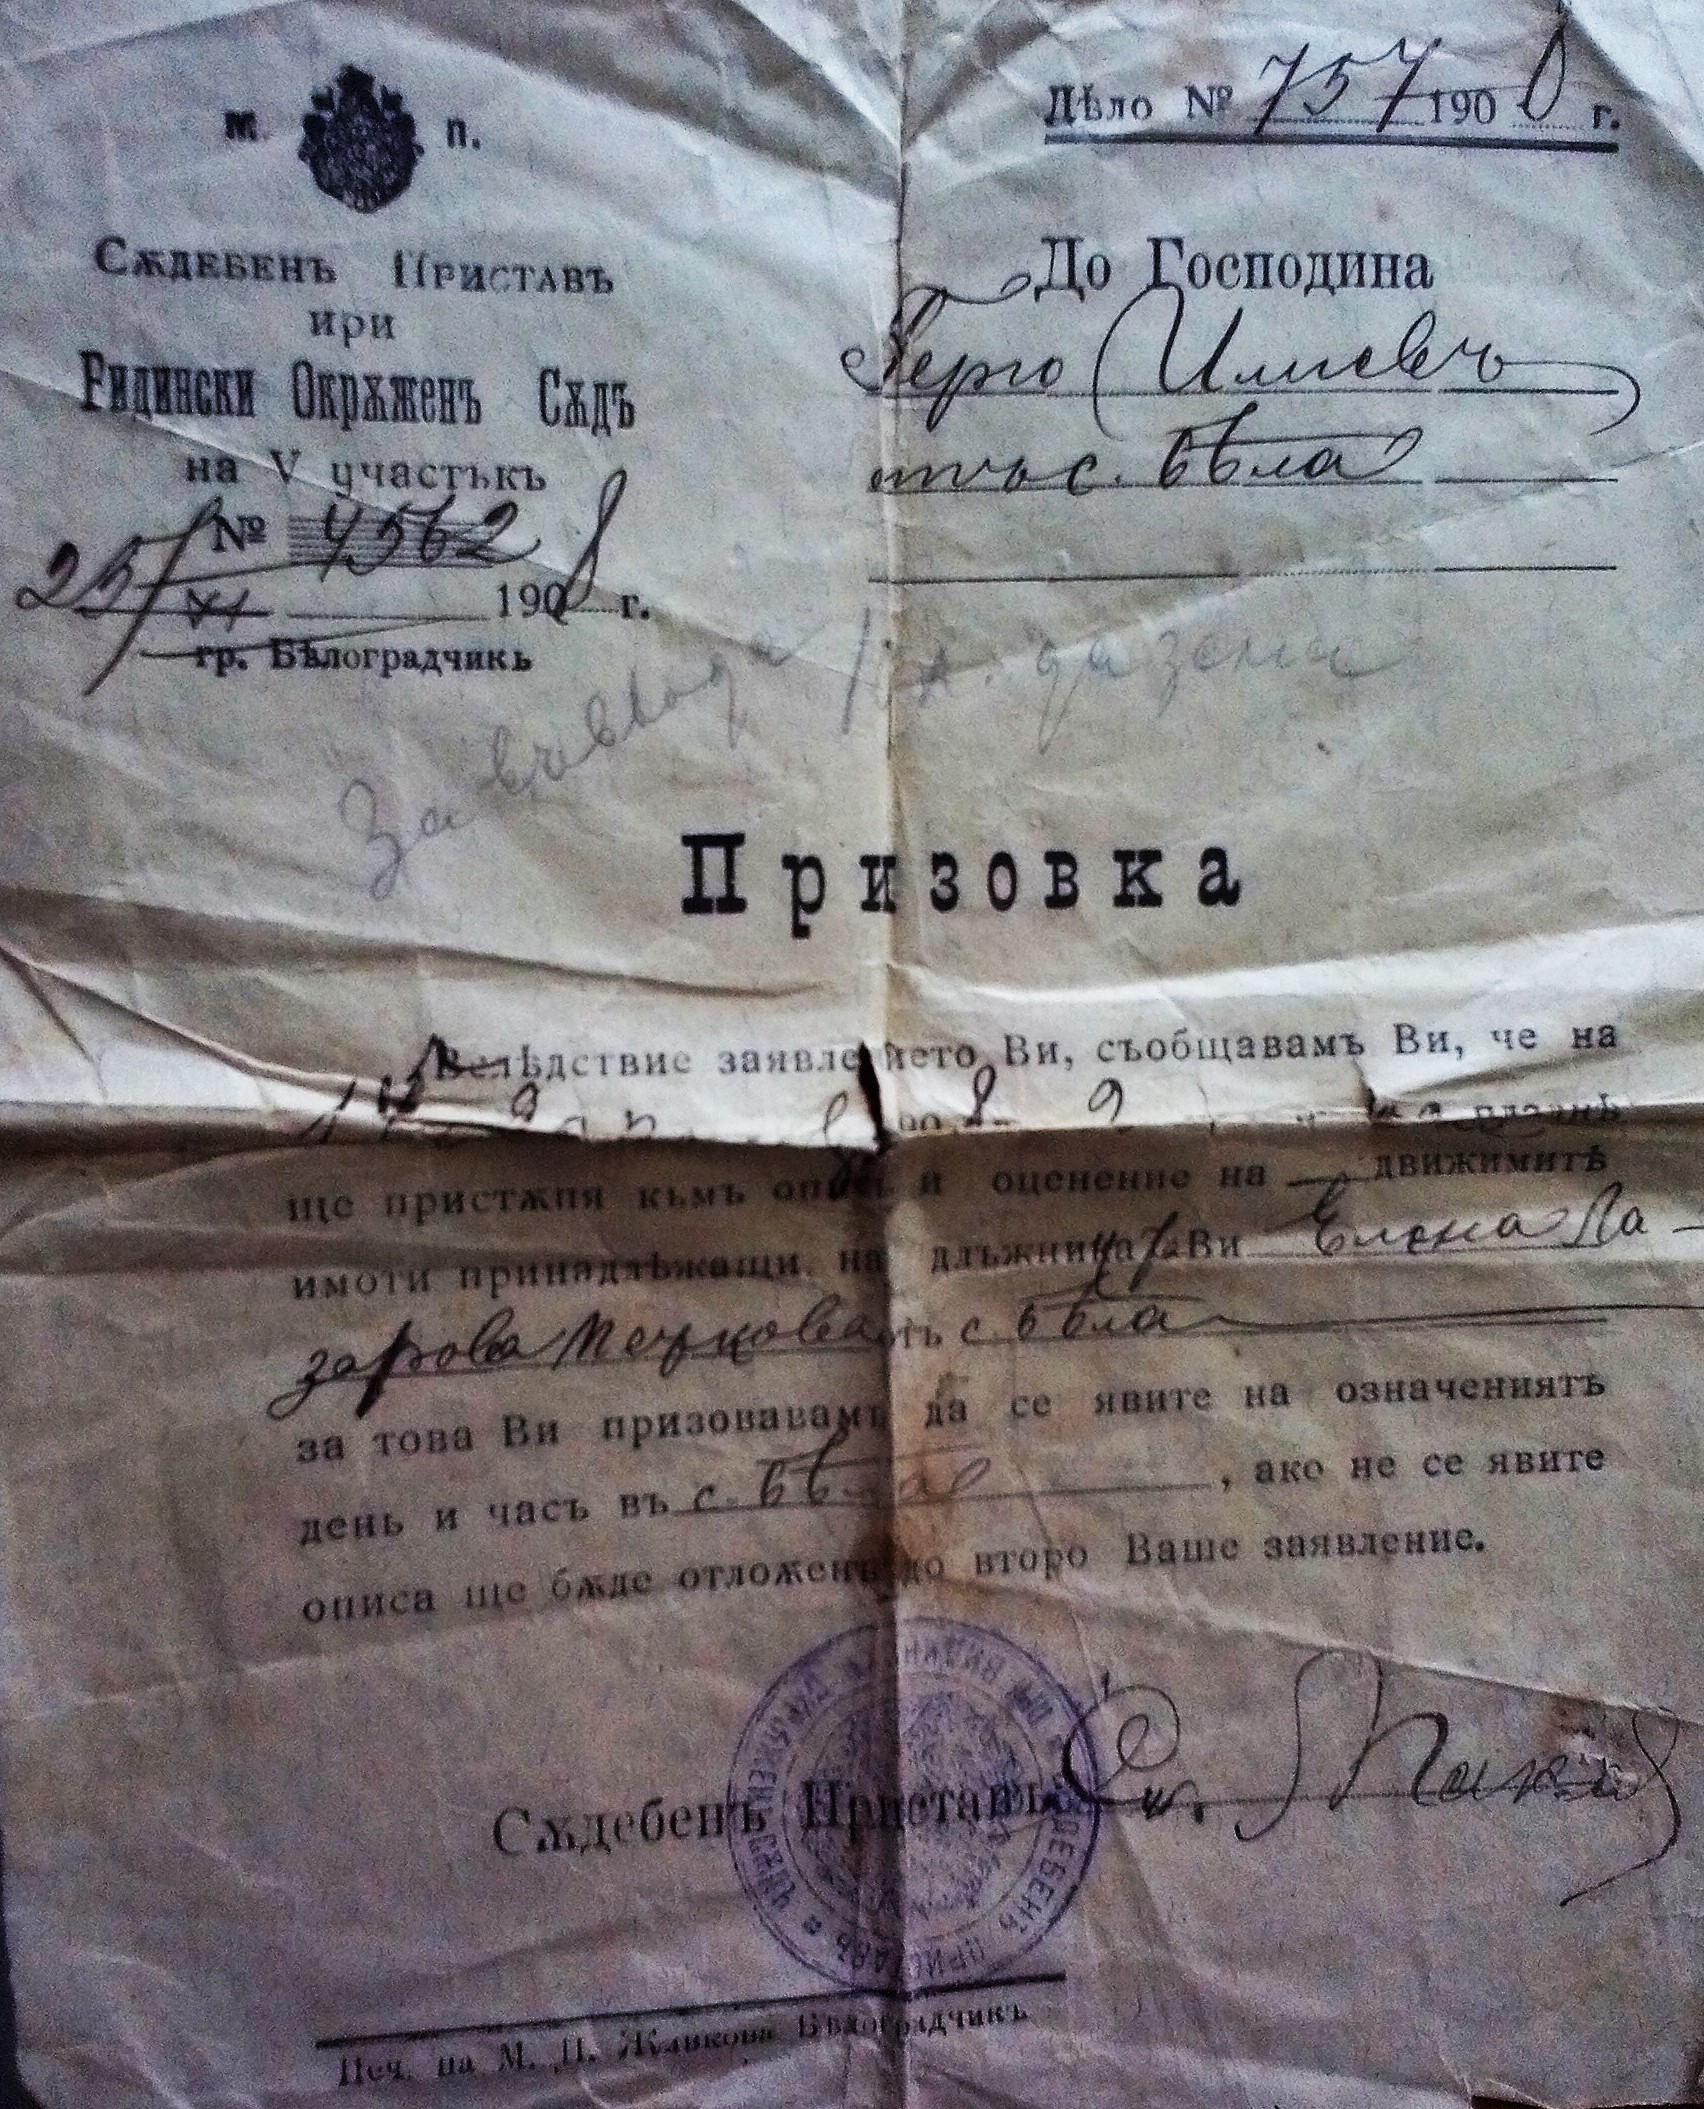 М. П.
Дѣло № 757 1908 г.
Сѫдебенъ Приставъ
при
Видински Окрѫженъ Сѫдъ
на V участъкъ
№ 4562
25/XI 1908 г.
гр. Бѣлоградчикъ
До Господина
Герго Илиевъ
отъ с. Бѣла
Призовка
Вслѣдствие заявлението Ви, съобщавамъ Ви, че на
190 8
ще пристѫпя къмъ описъ и оценение на движимитѣ
имоти принадлѣжащи на длъжницата Ви Елена Ла-
зарова отъ с. Бѣла
за това Ви призовавамъ да се явите на означениятъ
день и часъ въ с. Бѣла, ако не се явите
описа ще бѫде отложенъ до второ Ваше заявление.
Сѫдебенъ Приставъ
СѪДЕБЕНЪ ПРИСТАВЪ
Печ. на М. П. Живкова Бѣлоградчикъ